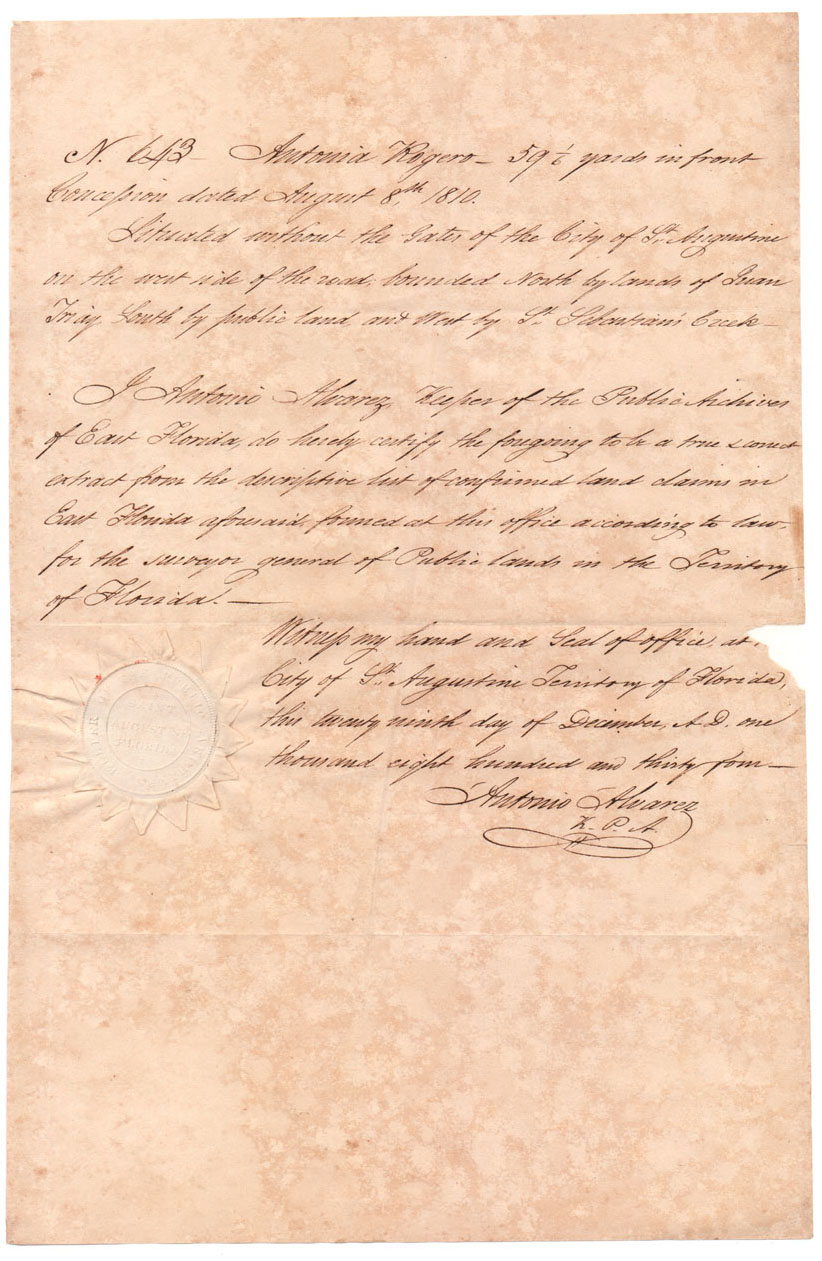 N. 643 - Antonia Rogero - 59 ½ yards in front
Concession dated August 8th 1810.
Situated without the Gates of the City of St. Augustine
on the west side of the road, bounded North by lands of Juan
Triay, South by public land, and West by St. Sebastian's Creek -
I Antonio Alvarez, Keeper of the Public Archives
of East Florida, do hereby certify the foregoing to be a true & correct
extract from the descriptive list of confirmed land claims in
East Florida aforesaid, formed at this office according to law,
for the surveyor general of Public lands in the Territory
of Florida. -
Witness my hand and Seal of office, at
City of St. Augustine Territory of Florida,
this twenty ninth day of December, A.D. one
thousand eight hundred and thirty four -
Antonio Alvarez
K. P. A.
SAINT
AUGUSTINE
FLORIDA